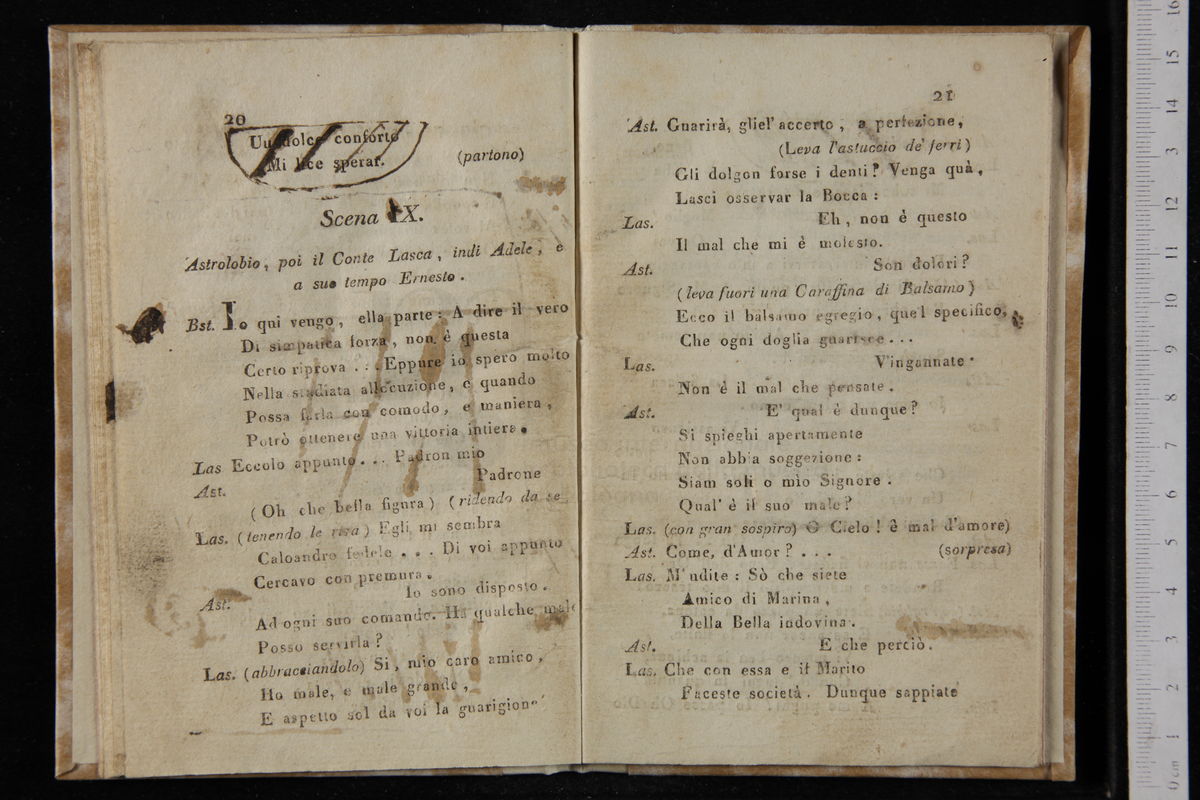 20
Un dolce conforto
Mi lice sperar.
(partono)
Scena IX.
Astrolobio, poi il Conte Lasca, indi Adele, e
a suo tempo Ernesto.
Bst. Io qui vengo, ella parte: A dire il vero
Di simpatica forza, non è questa
Certo riprova . . . Eppure io spero molto
Nella studiata allocuzione, e quando
Possa farla con comodo, e maniera,
Potrò ottenere una vittoria intiera.
Las Eccolo appunto . . . Padron mio
Ast. Padrone
(Oh che bella figura) (ridendo da se
Las. (tenendo le risa) Egli mi sembra
Caloandro fedele . . . Di voi appunto
Cercavo con premura.
Ast. Io sono disposto.
Ad ogni suo comando. Ha qualche male
Posso servirla?
Las. (abbracciandolo) Si, mio caro amico,
Ho male, e male grande,
E aspetto sol da voi la guarigione
21
Ast. Guarirà, gliel' accerto, a perfezione,
(Leva l'astuccio de' ferri)
Gli dolgon forse i denti? Venga quà,
Lasci osservar la Bocca:
Las. Eh, non è questo
Il mal che mi è molesto.
Ast. Son dolori?
(leva fuori una Caraffina di Balsamo)
Ecco il balsamo egregio, quel specifico,
Che ogni doglia guarisce . . .
Las. V'ingannate.
Non è il mal che pensate.
Ast. E' qual è dunque?
Si spieghi apertamente
Non abbia soggezione:
Siam soli o mio Signore.
Qual' è il suo male?
Las. (con gran sospiro) O Cielo! è mal d'amore)
Ast. Come, d'Amor? . . . (sorpresa)
Las. M' udite: Sò che siete
Amico di Marina,
Della Bella indovina.
Ast. E che perciò.
Las. Che con essa e il Marito
Faceste società. Dunque sappiate